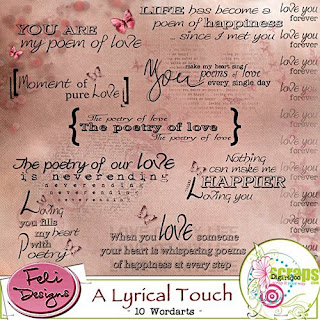 YOU ARE
my poem of love
LIFE has become a
poem of happiness
...since I met you
love you
forever
love you
forever
love you
forever
love you
forever
love you
forever
love you
forever
love you
forever
[Moment of
pure Love]
You
make my heart sing
poems of love
every single day
The poetry of love
{ The poetry of love }
The poetry of love
The poetry of our love
is neverending
neverending
neverending
neverending
Nothing
can make me
HAPPIER
Loving you
Loving
you fills
my heart
with
poetry
When you love someone
your heart is whispering poems
of happiness at every step
Feli
Designs
A Lyrical Touch
- 10 Wordarts -
Scraps
Digi